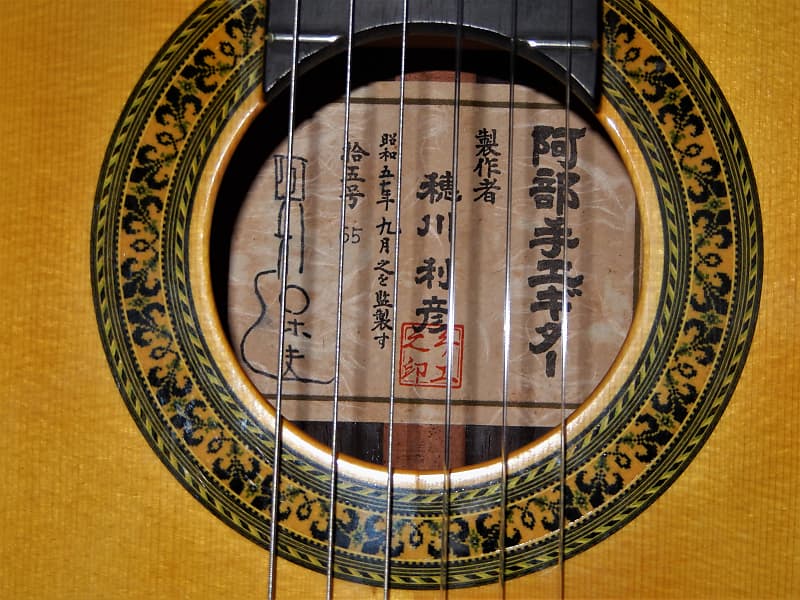 阿部手工ギター
製作者
穂川利彦
之印
昭和五七年九月之を監製す
拾五号
65
阿